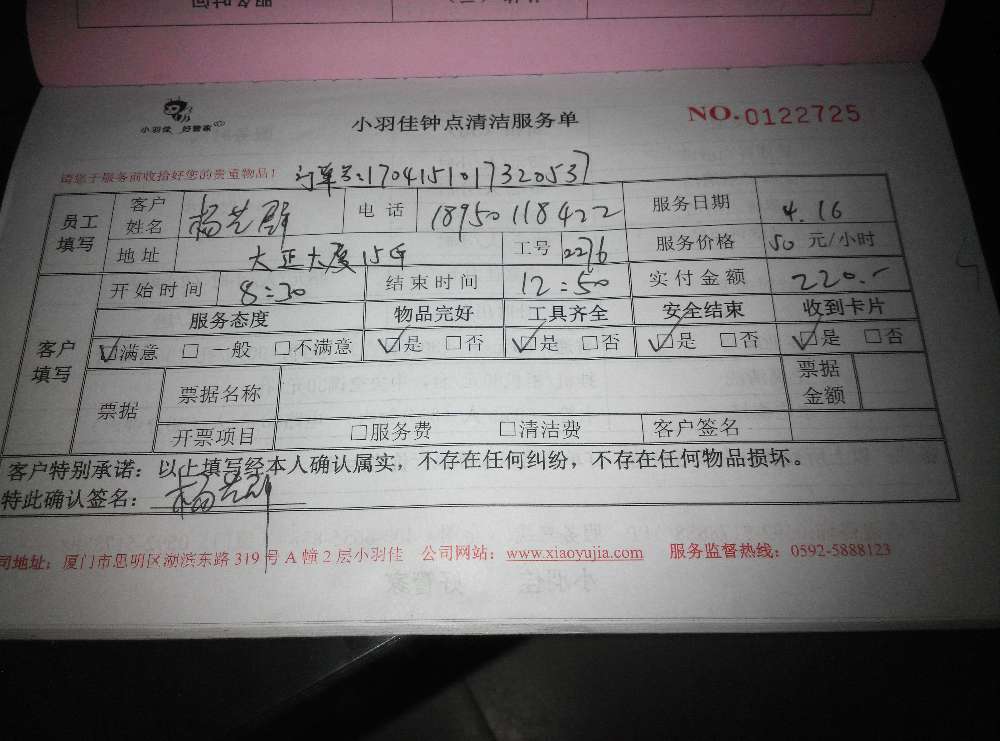 小羽佳 好管家
小羽佳钟点清洁服务单
NO.0122725
请您于服务前收拾好您的贵重物品！ 订单号:1704151017320537
员工填写 客户姓名 杨芝 电话 18950118422 服务日期 4.16
地址 大正大厦15 工号 2276 服务价格 50 元/小时
开始时间 8:30 结束时间 12:50 实付金额 220.-
客户填写 服务态度 物品完好 工具齐全 安全结束 收到卡片
☑满意 □一般 □不满意 ☑是 □否 ☑是 □否 ☑是 □否 ☑是 □否
票据 票据名称 票据金额
开票项目 □服务费 □清洁费 客户签名
客户特别承诺：以上填写经本人确认属实，不存在任何纠纷，不存在任何物品损坏。
特此确认签名：杨芝
司地址：厦门市思明区湖滨东路 319 号 A 幢 2 层小羽佳 公司网站：www.xiaoyujia.com 服务监督热线：0592-5888123